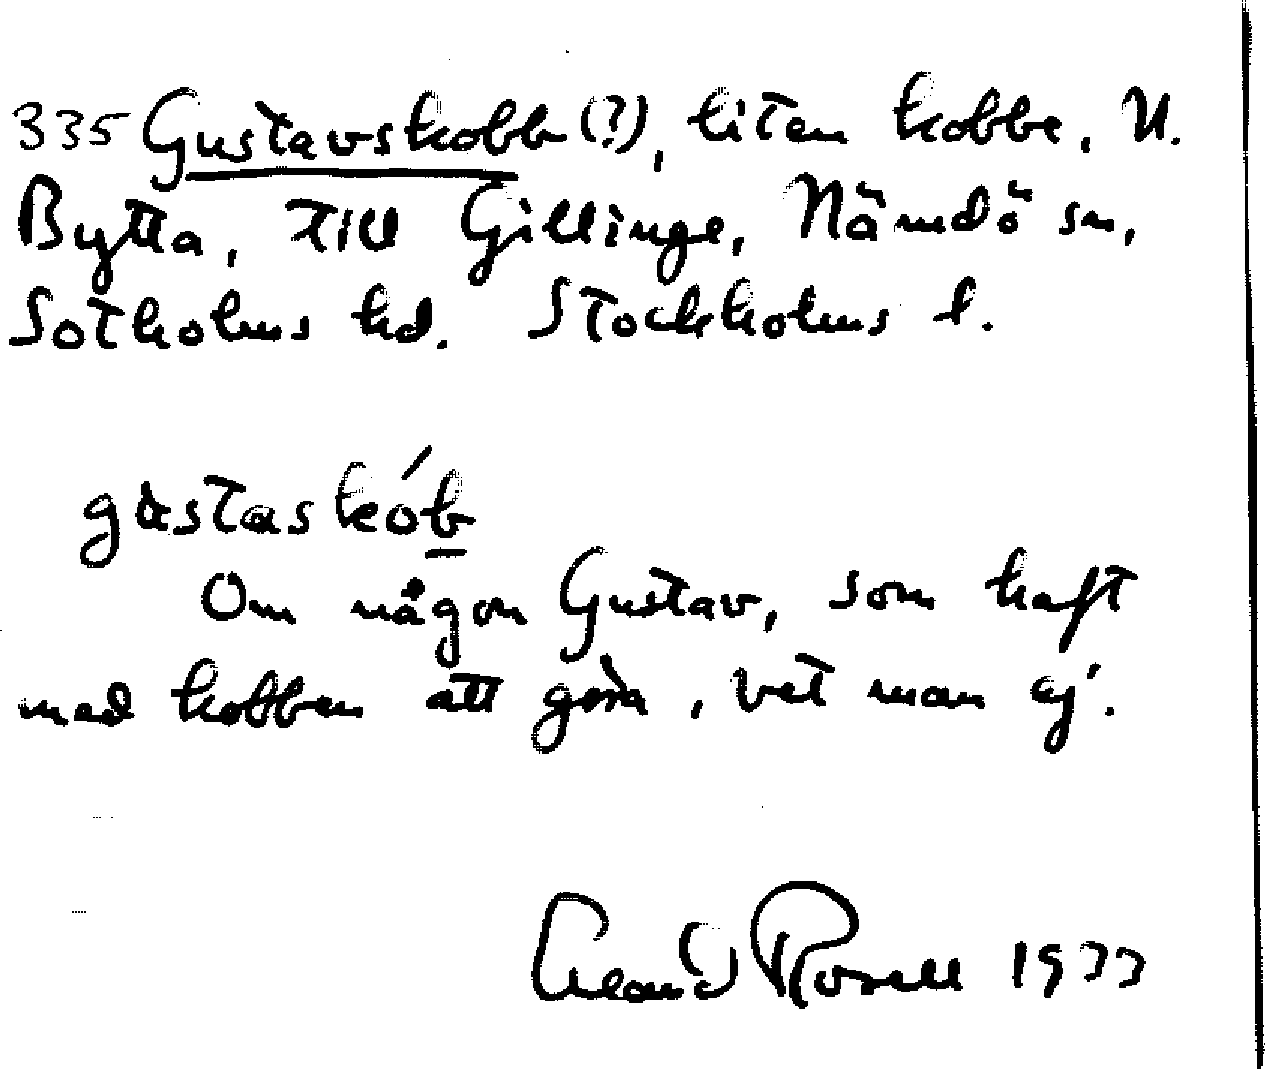 335 Gustavskobb (?), liten kobbe, N.
Bytta, till Gillinge, Nämdö sn,
Sotholms hd. Stockholms l.
gùstaskób
Om någon Gustav, som haft
med kobben att göra, vet man ej.
Rosell 1933